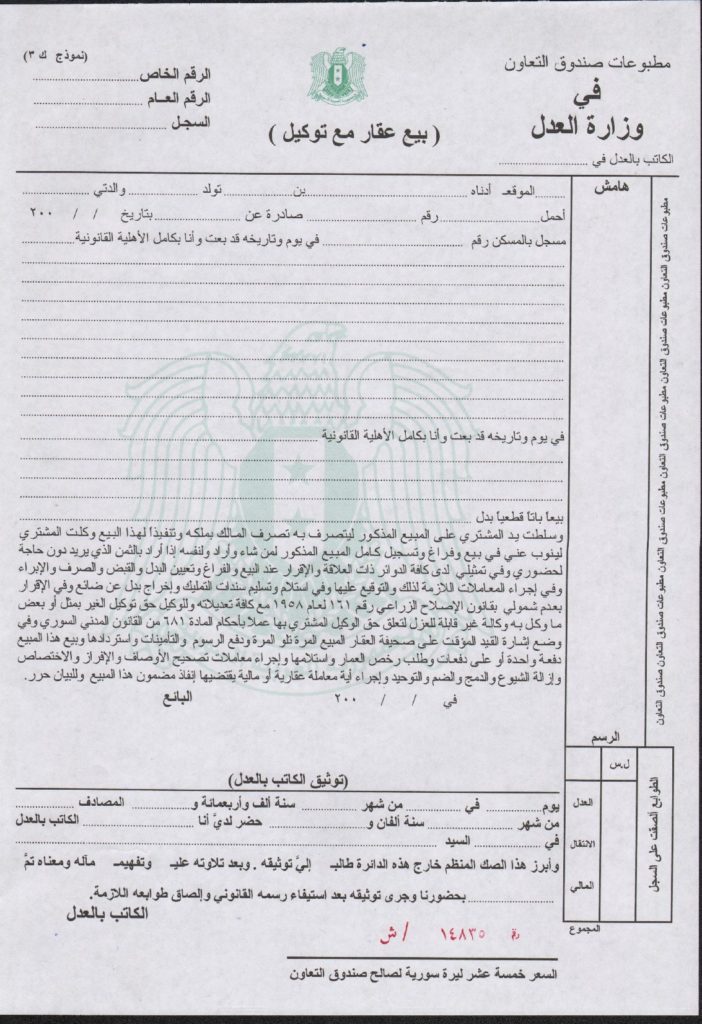 مطبوعات صندوق التعاون
في
وزارة العدل
الكاتب بالعدل في
( بيع عقار مع توكيل )
(نموذج ك ٣)
الرقم الخاص
الرقم العـام
السجل
هامش
الموقعـ أدناه بن تولد والدتي
أحمل رقم صادرة عن بتاريخ / / ٢٠٠
مسجل بالمسكن رقم في يوم وتاريخه قد بعت وأنا بكامل الأهلية القانونية
في يوم وتاريخه قد بعت وأنا بكامل الأهلية القانونية
بيعاً باتاً قطعياً بدل
وسلطت يد المشتري على المبيع المذكور ليتصرف به تصرف المالك بملكه وتنفيذاً لهذا البيع وكلت المشتري
لينوب عني في بيع وفراغ وتسجيل كامل المبيع المذكور لمن شاء وأراد ولنفسه إذا أراد بالثمن الذي يريد دون حاجة
لحضوري وفي تمثيلي لدى كافة الدوائر ذات العلاقة والإقرار عند البيع والفراغ وتعيين البدل والقبض والصرف والإبراء
وفي إجراء المعاملات اللازمة لذلك والتوقيع عليها وفي استلام وتسليم سندات التمليك وإخراج بدل عن ضائع وفي الإقرار
بعدم شمولي بقانون الإصلاح الزراعي رقم ١٦١ لعام ١٩٥٨ مع كافة تعديلاته وللوكيل حق توكيل الغير بمثل أو بعض
ما وكل به وكالة غير قابلة للعزل لتعلق حق الوكيل المشتري بها عملاً بأحكام المادة ٦٨١ من القانون المدني السوري وفي
وضع إشارة القيد المؤقت على صحيفة العقار المبيع المرة تلو المرة ودفع الرسوم والتأمينات واستردادها وبيع هذا المبيع
دفعة واحدة أو على دفعات وطلب رخص العمار واستلامها وإجراء معاملات تصحيح الأوصاف والإفراز والاختصاص
وإزالة الشيوع والدمج والضم والتوحيد وإجراء أية معاملة عقارية أو مالية يقتضيها إنفاذ مضمون هذا المبيع وللبيان حرر.
في / / ٢٠٠ البائع
مطبوعات صندوق التعاون مطبوعات صندوق التعاون مطبوعات صندوق التعاون مطبوعات صندوق التعاون مطبوعات صندوق التعاون
الرسم
ل.س
العدل
الانتقال
المالي
المجموع
الطوابع ألصقت على السجل
(توثيق الكاتب بالعدل)
يوم في من شهر سنة ألف وأربعمائة و المصادف
من شهر سنة ألفان و حضر لديَّ أنا الكاتب بالعدل
في السيد
وأبرز هذا الصك المنظم خارج هذه الدائرة طالبـ إليَّ توثيقه . وبعد تلاوته عليـ وتفهيمـ مآله ومعناه تمَّ
بحضورنا وجرى توثيقه بعد استيفاء رسمه القانوني وإلصاق طوابعه اللازمة.
الكاتب بالعدل
رقم ١٤٨٣٥ / ش
السعر خمسة عشر ليرة سورية لصالح صندوق التعاون